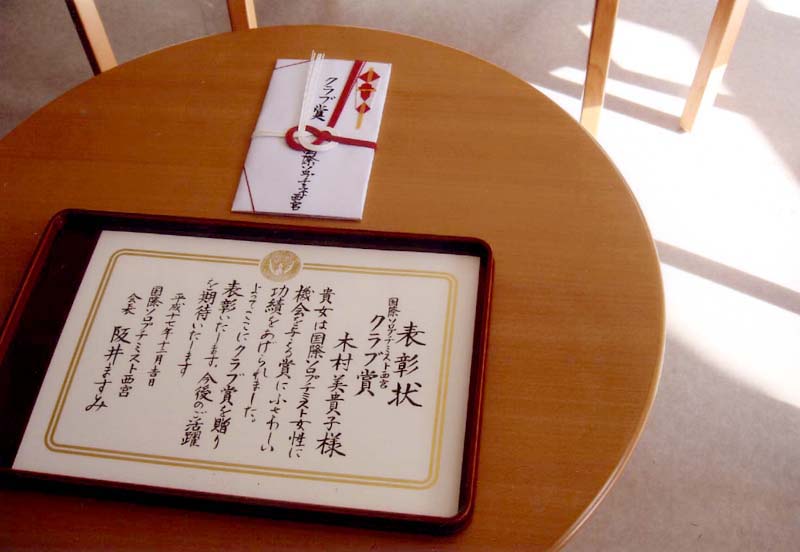 クラブ賞
国際ソロプチミスト西宮
表彰状
国際ソロプチミスト西宮
クラブ賞
木村美貴子様
貴女は国際ソロプチミスト女性に
機会を与える賞にふさわしい
功績をあげられました。
よってここにクラブ賞を贈り
表彰いたします。今後のご活躍
を期待いたします
平成十七年十二月吉日
国際ソロプチミスト西宮
会長 阪井ますみ